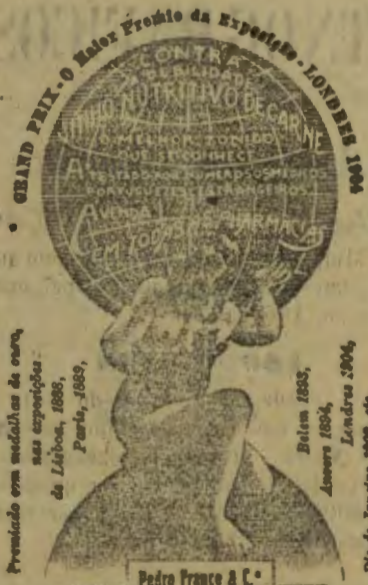 GRAND PRIX - O Maior Premio da Exposição - LONDRES 1904
CONTRA
A DEBILIDADE
VINHO NUTRITIVO DE CARNE
O MELHOR TONICO
QUE SE CONHECE
ATESTADO POR NUMEROSOS MEDICOS
PORTUGUEZES E ESTRANGEIROS
A VENDA NAS PHARMACIAS
EM TODAS
Premiado com medalhas de ouro,
nas exposições
de Lisboa, 1888,
Paris, 1889,
Belem 1893,
Anvers 1894,
Londres 1904,
Rio de Janeiro 1908, etc.
Pedro Franco & C.ª